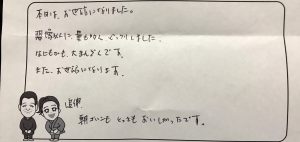 本日は、お世話になりました。
習慣以上に、量も多く びっくりしました。
なにもかも、大まんぞくです。
また、お世話になります。
追伸
朝ごはんも とっても おいしかったです。